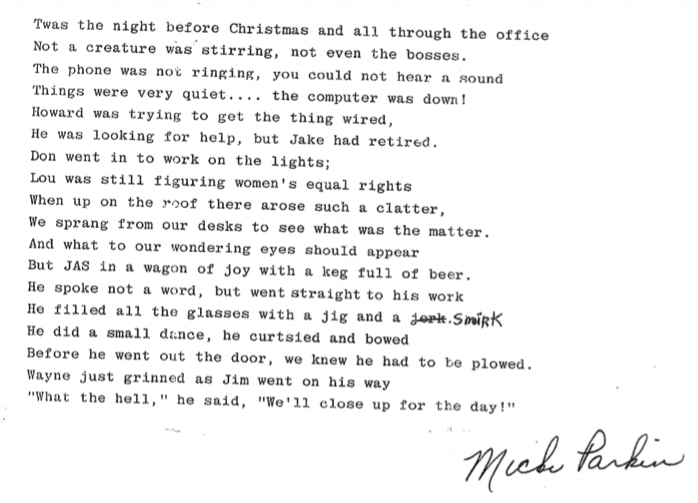 Twas the night before Christmas and all through the office
Not a creature was stirring, not even the bosses.
The phone was not ringing, you could not hear a sound
Things were very quiet.... the computer was down!
Howard was trying to get the thing wired,
He was looking for help, but Jake had retired.
Don went in to work on the lights;
Lou was still figuring women's equal rights
When up on the roof there arose such a clatter,
We sprang from our desks to see what was the matter.
And what to our wondering eyes should appear
But JAS in a wagon of joy with a keg full of beer.
He spoke not a word, but went straight to his work
He filled all the glasses with a jig and a jerk.SmiRK
He did a small dance, he curtsied and bowed
Before he went out the door, we knew he had to be plowed.
Wayne just grinned as Jim went on his way
"What the hell," he said, "We'll close up for the day!"
Parkin